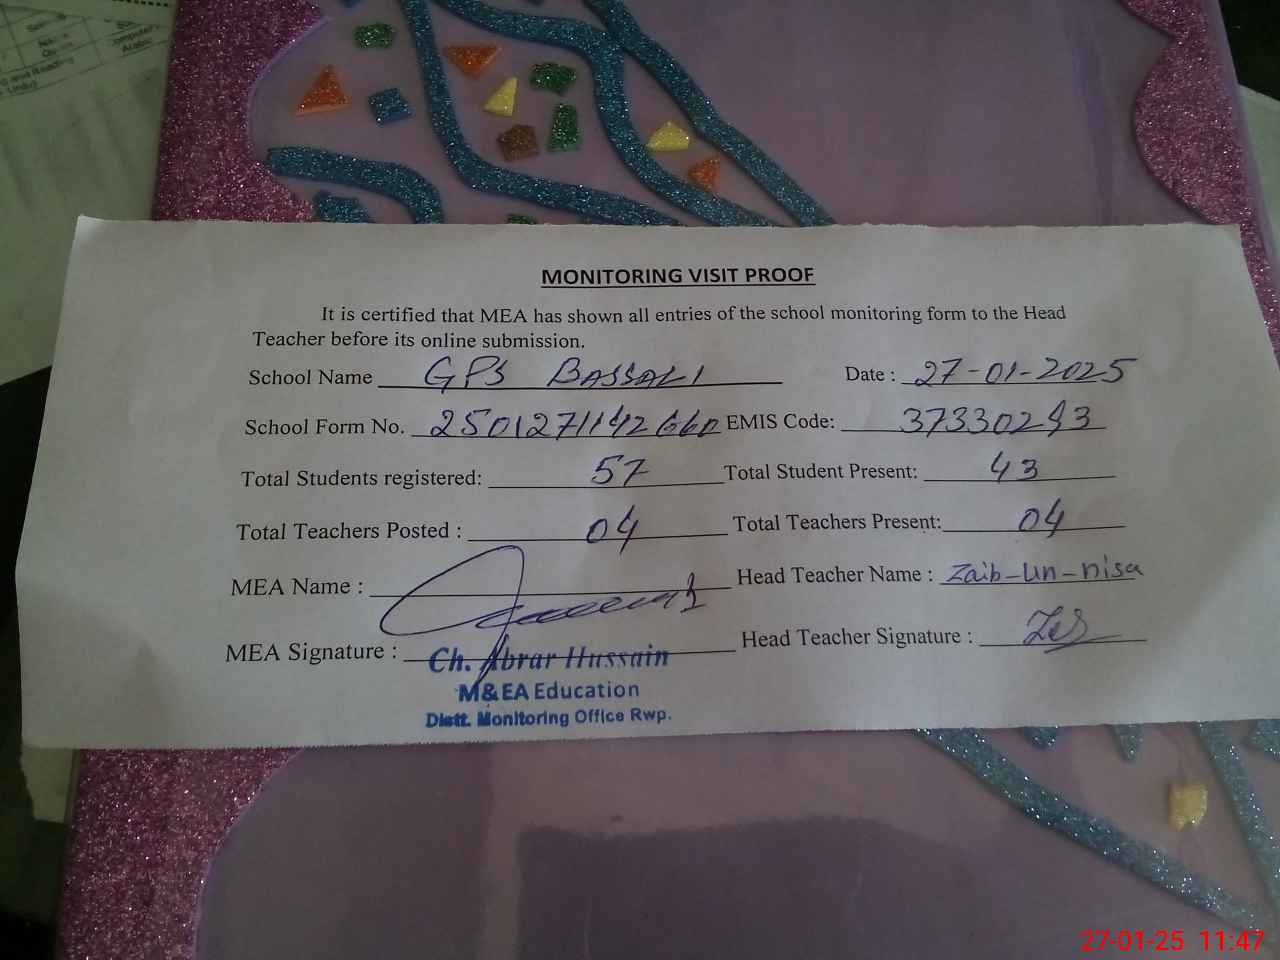 Computer
Arabic
MONITORING VISIT PROOF
It is certified that MEA has shown all entries of the school monitoring form to the Head
Teacher before its online submission.
School Name GPS BASSALI Date : 27-01-2025
School Form No. EMIS Code: 37330243
Total Students registered: 57 Total Student Present: 43
Total Teachers Posted : 04 Total Teachers Present: 04
MEA Name : Head Teacher Name : Zaib-un-nisa
MEA Signature : Head Teacher Signature :
Ch. Abrar Hussain
M&EA Education
Distt. Monitoring Office Rwp.
27-01-25 11:47